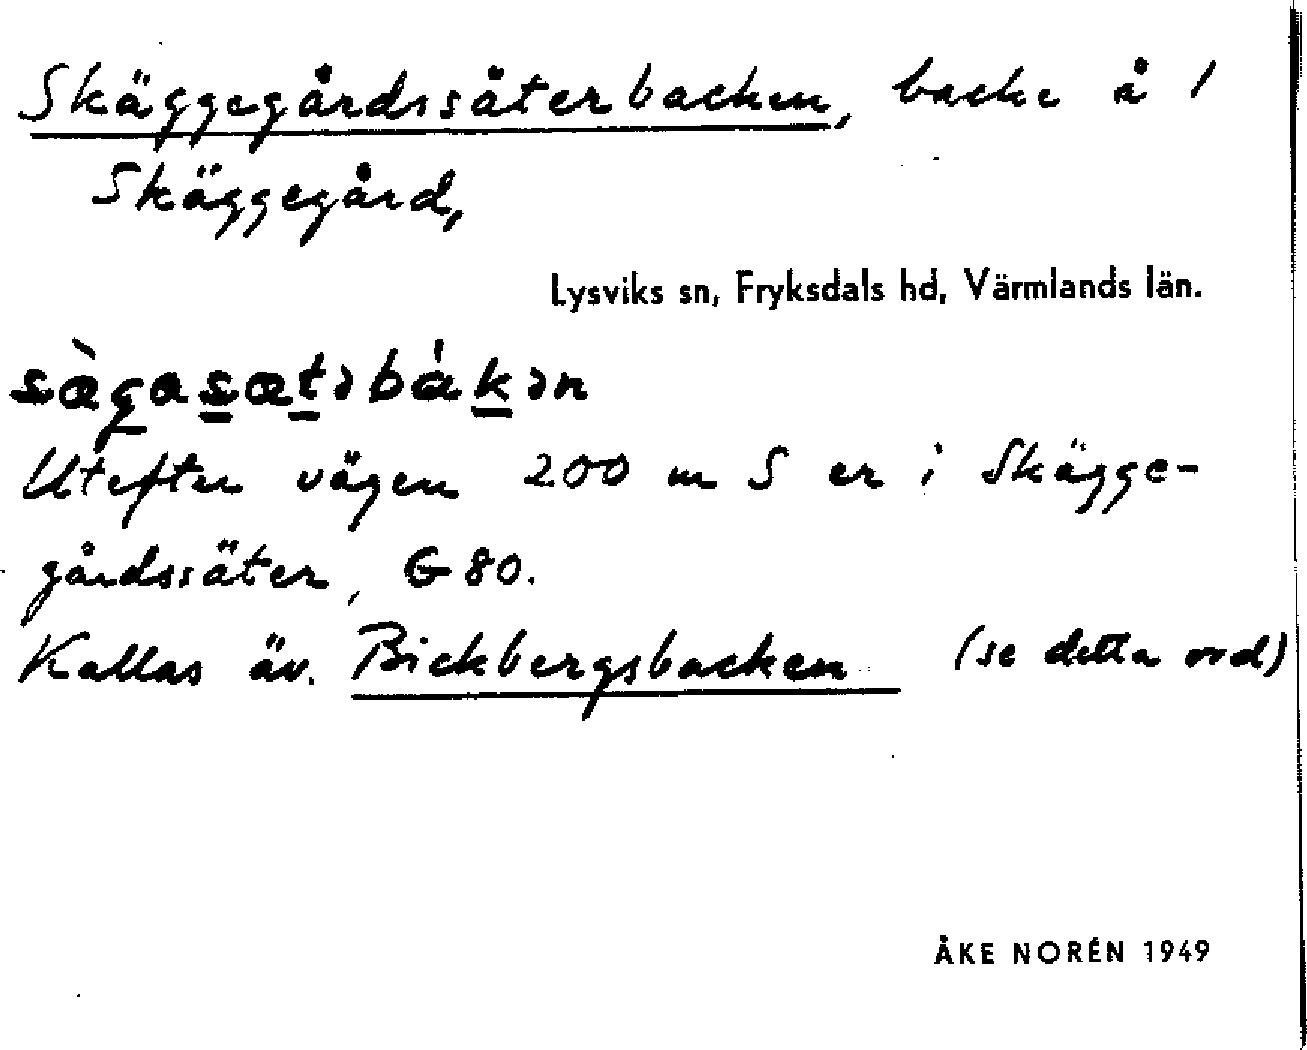 Skäggegårdssäterbacken, backe å 1
Skäggegård,
Lysviks sn, Fryksdals hd, Värmlands län.
Utefter vägen 200 m S er i Skägge-
gårdssäter, G 80.
Kallas äv. Bickbergsbacken (se detta ord)
ÅKE NORÉN 1949